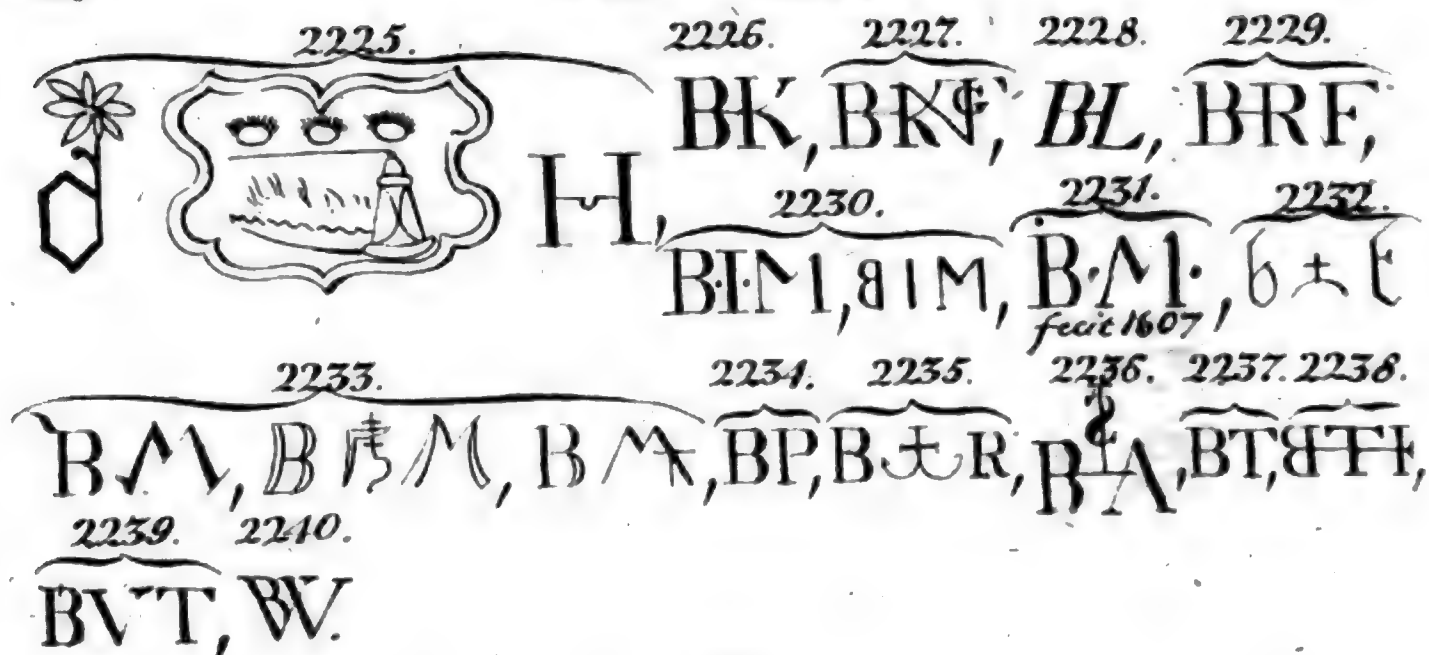 2225. 2226. 2227. 2228. 2229.
H, BK, BRNG, BL, BRF,
2230. 2231. 2232.
B·I·M, BIM, B·M·, b t
fecit 1607
2233. 2234. 2235. 2236. 2237. 2238.
BM, B M, B M, BP, B R, B A, BT, BTH,
2239. 2240.
BVT, BW.